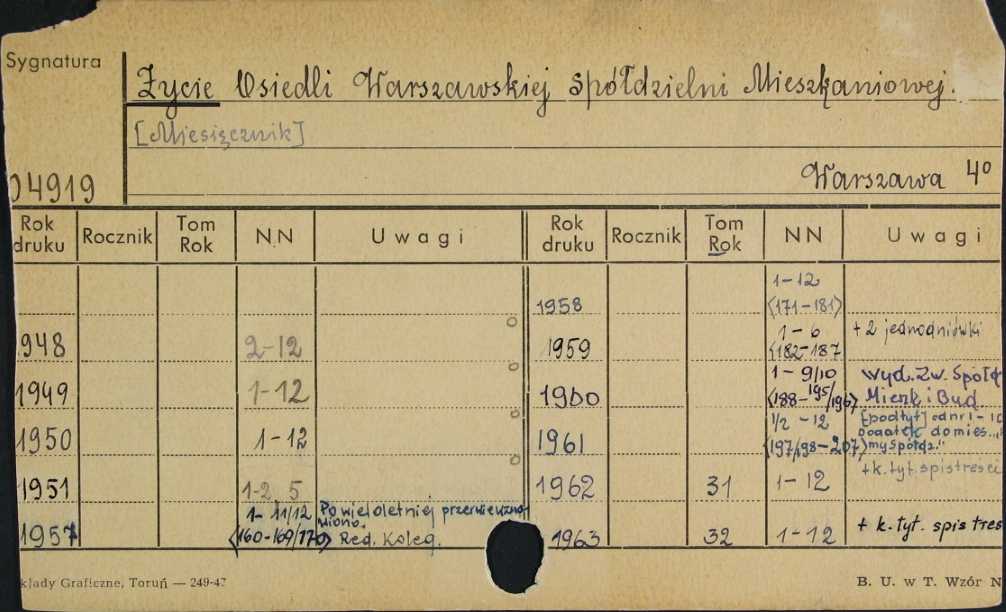 Sygnatura
Życie Osiedli Warszawskiej Spółdzielni Mieszkaniowej.
[Miesięcznik]
04919
Warszawa 4°
Rok druku Rocznik Tom Rok NN Uwagi Rok druku Rocznik Tom Rok NN Uwagi
1958 1-12
(171-181)
948 2-12 1959 1-6 + 2 jednodniówki
(182-187
1949 1-12 1960 1-9/10 Wyd. Zw. Spółd
(188-195/196) Mieszk i Bud
1950 1-12 1961 1/2-12 [podtyt] od nr 1-
(197/198-207) dodatek do mies. "
my spółdz."
1951 1-2, 5 1962 31 1-12 +k. tyt. spis treści
1957 1-11/12 Po wieloletniej przerwie wzno
wiono.
(160-169/170) Red. Koleg. 1963 32 1-12 + k. tyt. spis tres
kłady Graficzne, Toruń — 249-47
B. U. w T. Wzór N